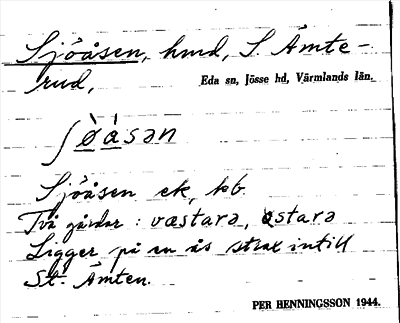 Sjöåsen, hmd, S. Ämte-
rud,
Eda sn, Jösse hd, Värmlands län.
ʃø̀ásən
Sjöåsen ek, kb.
Två gårdar : væstarə, östarə
Ligger på en ås strax intill
St. Ämten.
PER HENNINGSSON 1944.